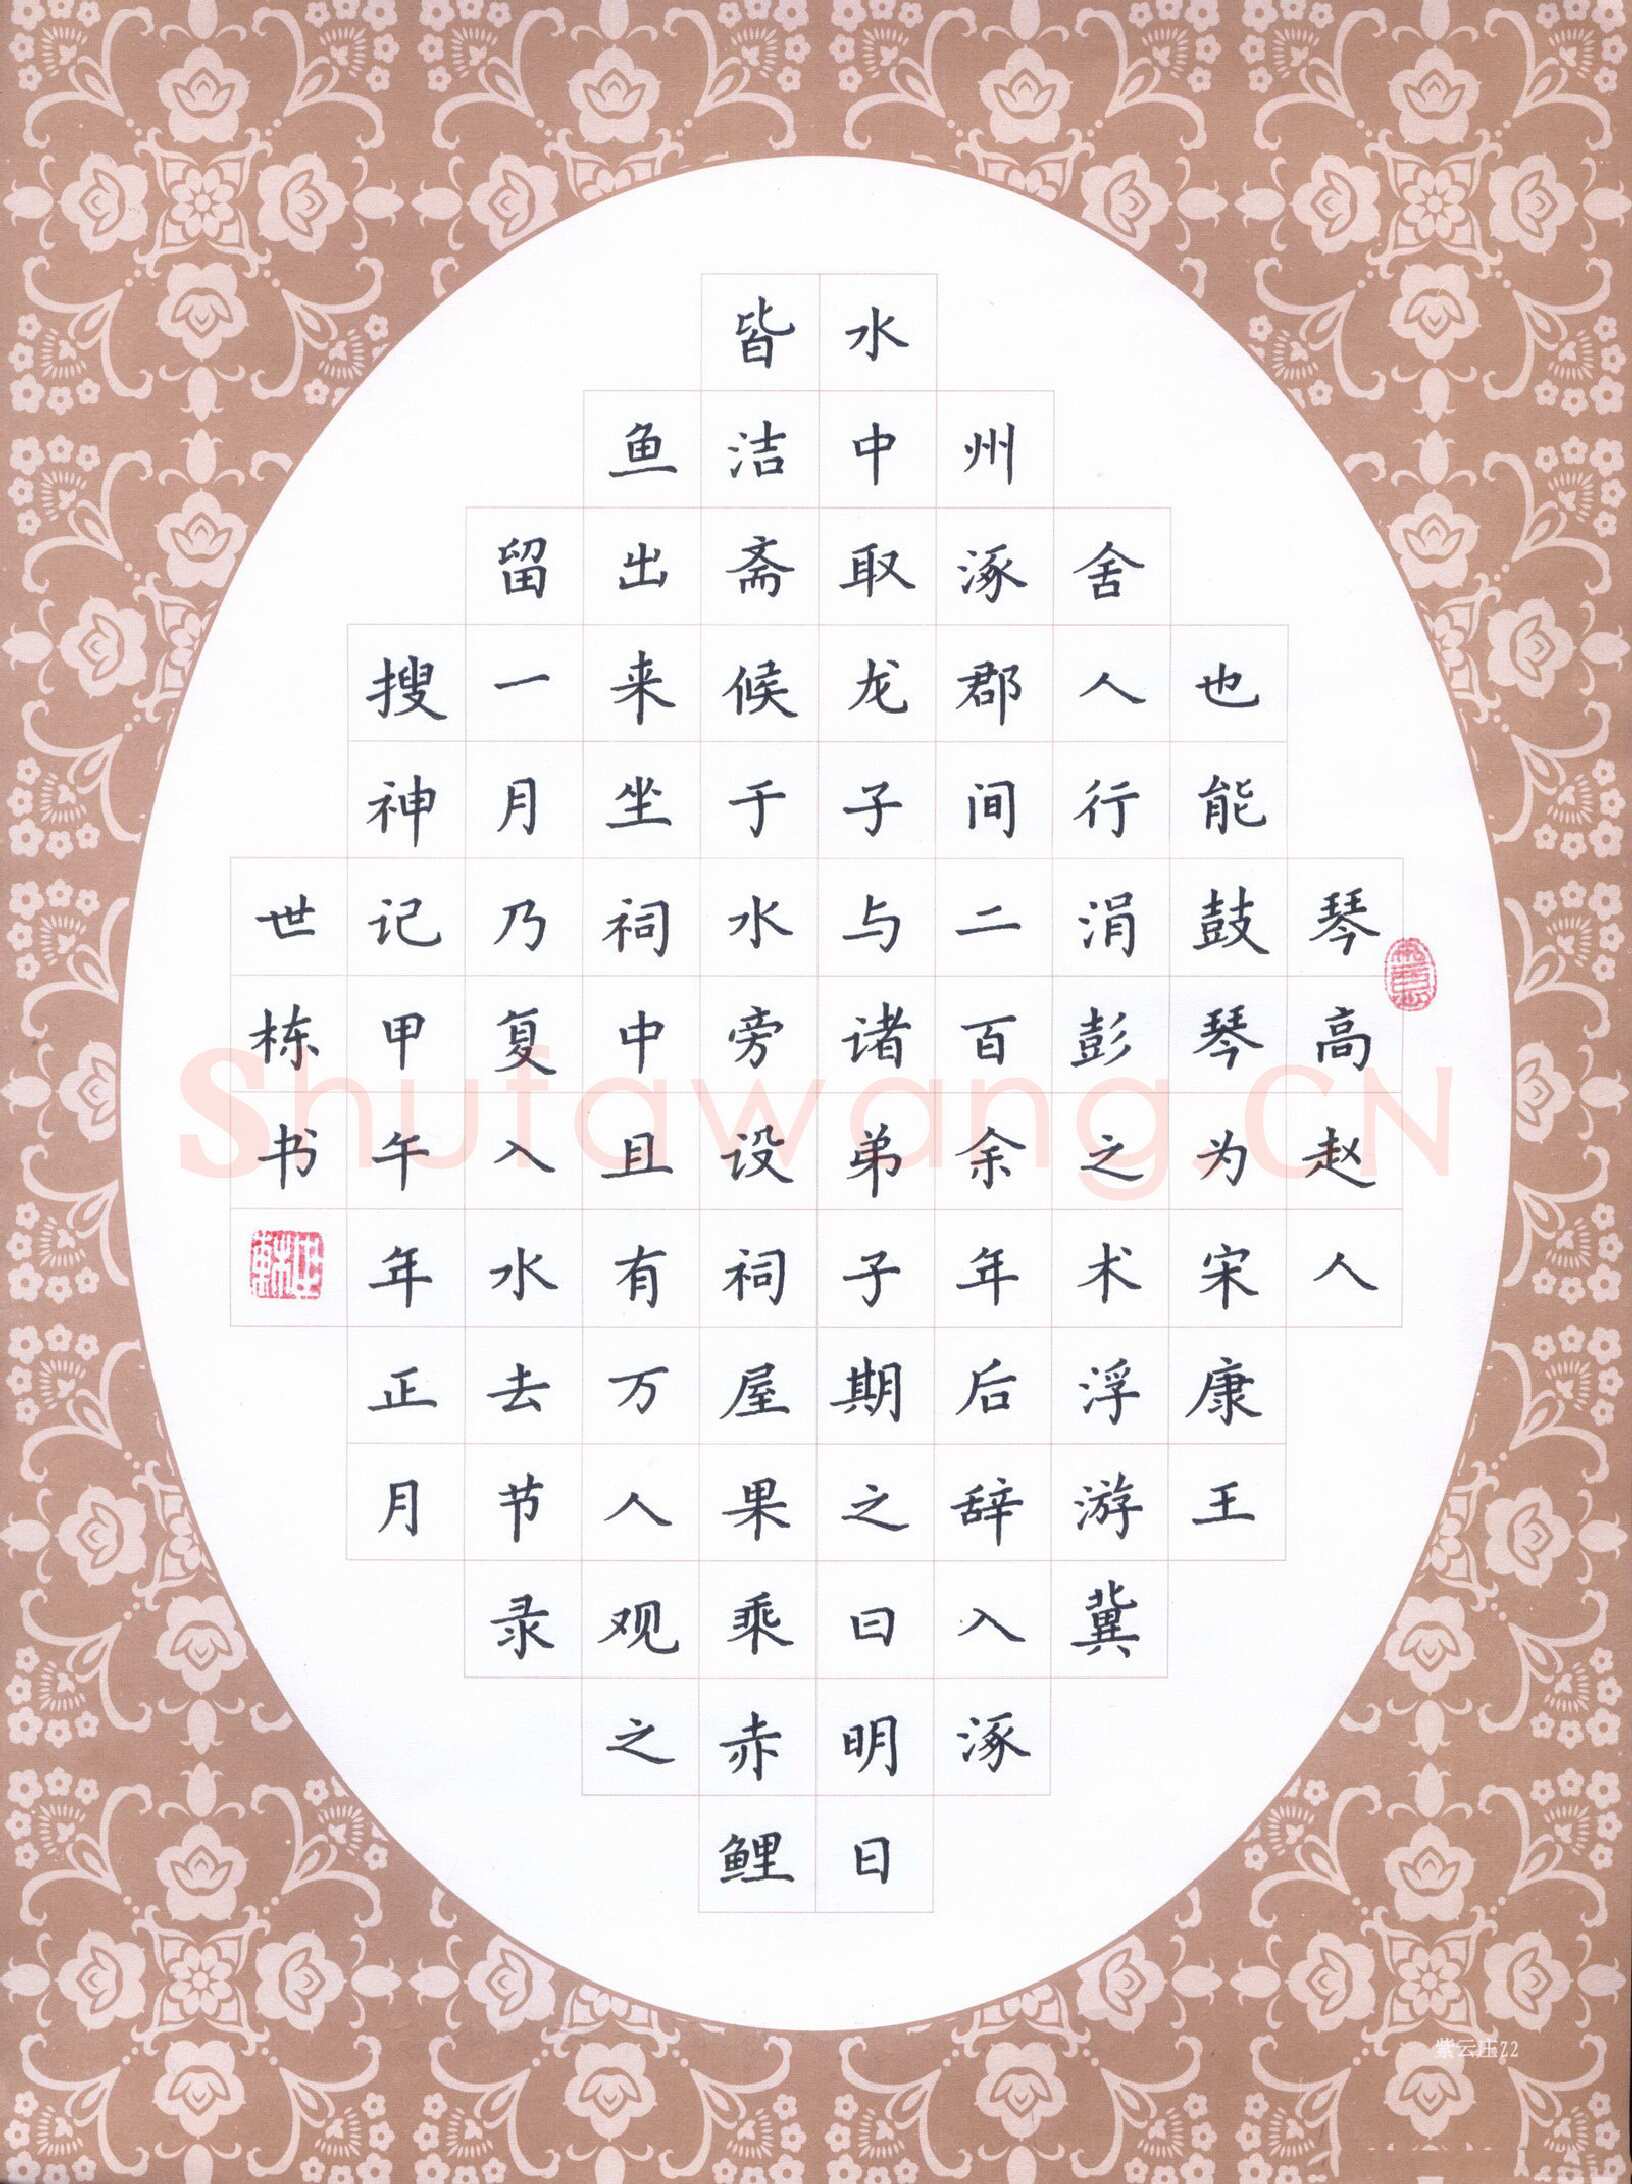 琴高赵人
也能鼓琴为宋康王
舍人行涓彭之术浮游冀
州涿郡间二百余年后辞入涿
水中取龙子与诸弟子期之曰明日
皆洁斋候于水旁设祠屋果乘赤鲤
鱼出来坐祠中且有万人观之
留一月乃复入水去节录
搜神记甲午年正月
世栋书
Shufawang.CN
紫云庄22